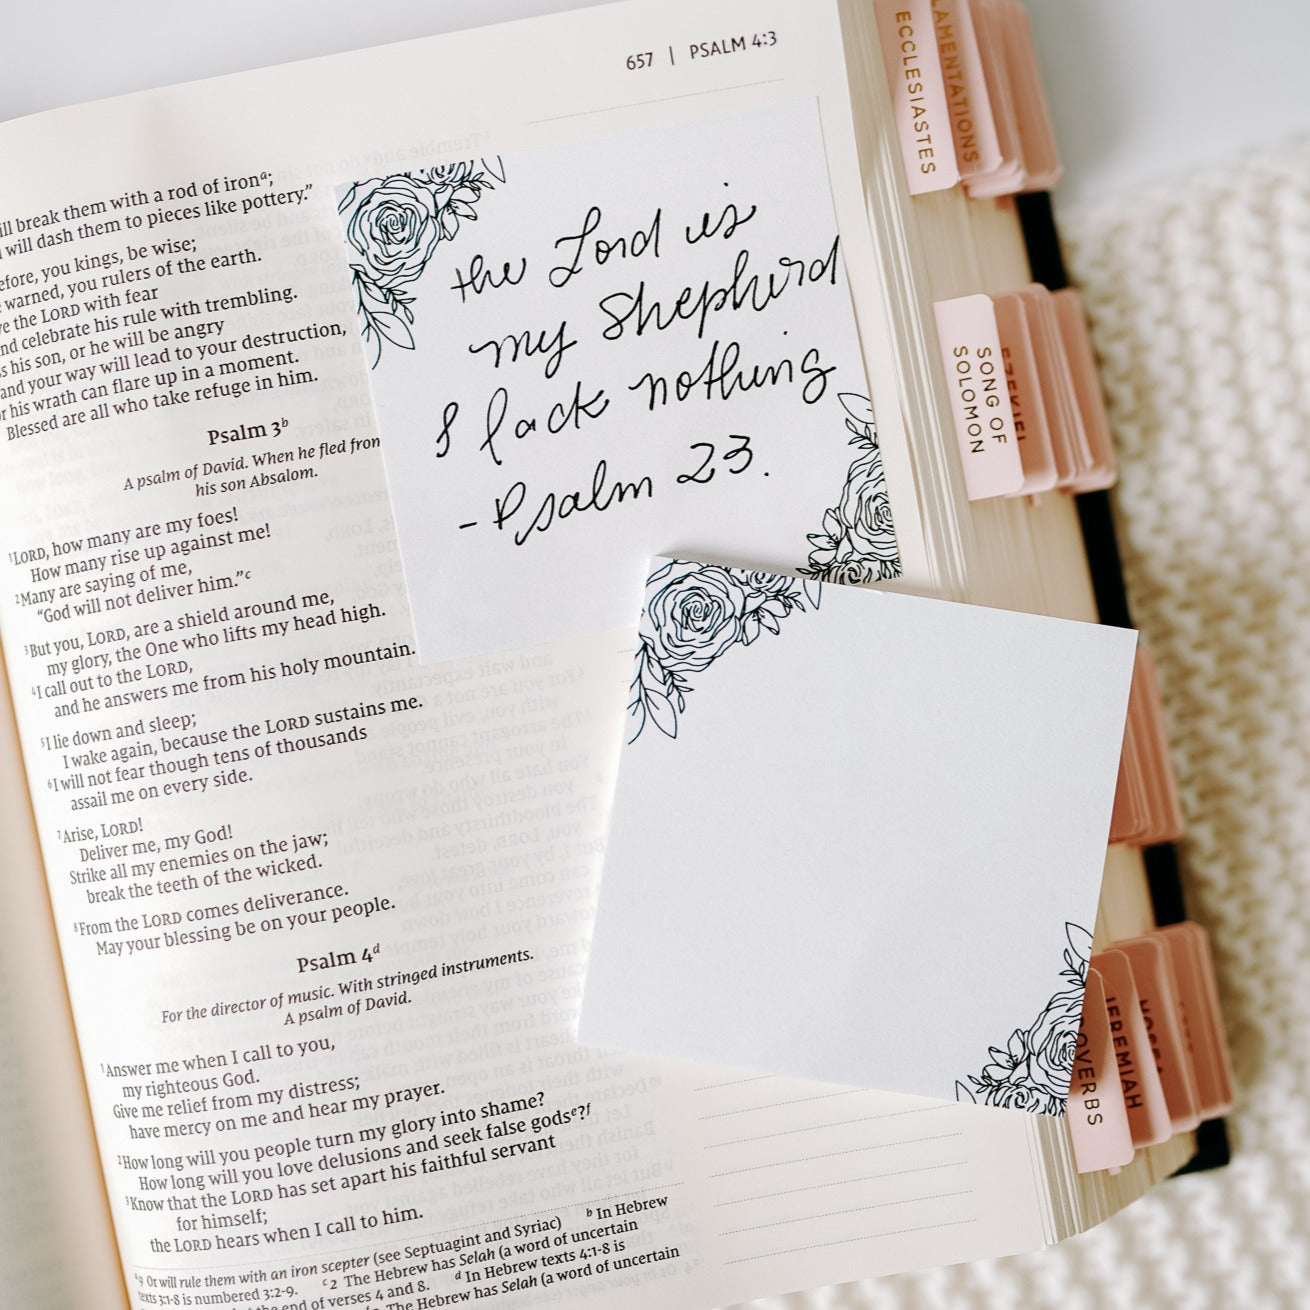 657 | PSALM 4:3
will break them with a rod of ironᵃ;
will dash them to pieces like pottery.”
you kings, be wise;
warned, you rulers of the earth.
the LORD with fear
and celebrate his rule with trembling.
his son, or he will be angry
and your way will lead to your destruction,
his wrath can flare up in a moment.
Blessed are all who take refuge in him.
Psalm 3ᵇ
A psalm of David. When he fled from
his son Absalom.
¹LORD, how many are my foes!
How many rise up against me!
²Many are saying of me,
“God will not deliver him.”ᶜ
³But you, LORD, are a shield around me,
my glory, the One who lifts my head high.
⁴I call out to the LORD,
and he answers me from his holy mountain.
⁵I lie down and sleep;
I wake again, because the LORD sustains me.
⁶I will not fear though tens of thousands
assail me on every side.
⁷Arise, LORD!
Deliver me, my God!
Strike all my enemies on the jaw;
break the teeth of the wicked.
⁸From the LORD comes deliverance.
May your blessing be on your people.
Psalm 4ᵈ
For the director of music. With stringed instruments.
A psalm of David.
¹Answer me when I call to you,
my righteous God.
Give me relief from my distress;
have mercy on me and hear my prayer.
²How long will you people turn my glory into shame?
How long will you love delusions and seek false godsᵉ?ᶠ
³Know that the LORD has set apart his faithful servant
for himself;
the LORD hears when I call to him.
ᵃ9 Or will rule them with an iron scepter (see Septuagint and Syriac) ᵇ In Hebrew
texts 3:1-8 is numbered 3:2-9. ᶜ2 The Hebrew has Selah (a word of uncertain
the end of verses 4 and 8. ᵈ In Hebrew texts 4:1-8 is
The Hebrew has Selah (a word of uncertain
the Lord is
my Shepherd
I lack nothing
-Psalm 23.
LAMENTATIONS
ECCLESIASTES
EZEKIEL
SONG OF
SOLOMON
HOSEA
JEREMIAH
OVERBS